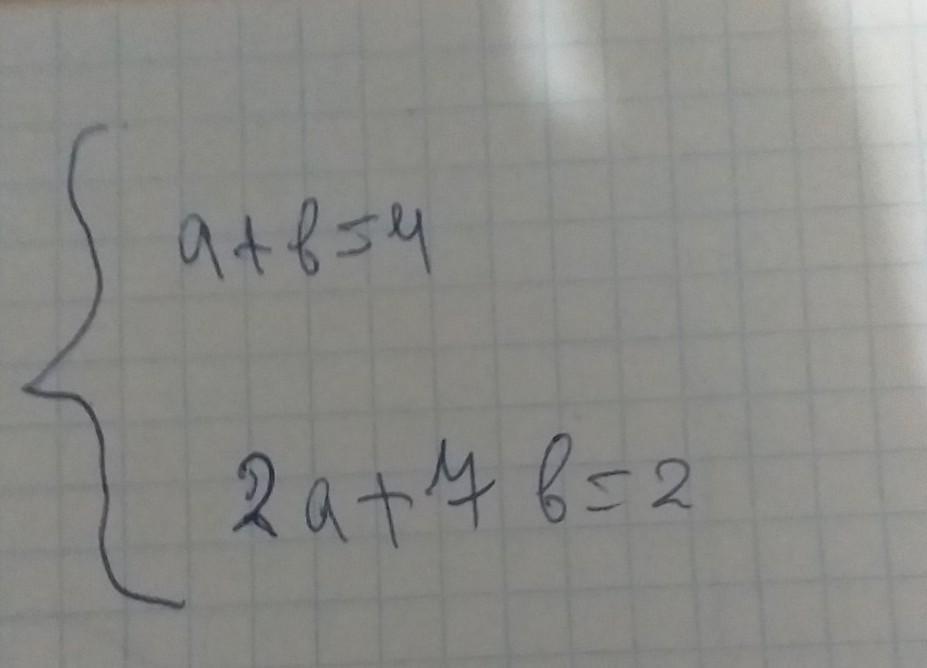 a+b=4
2a+7b=2